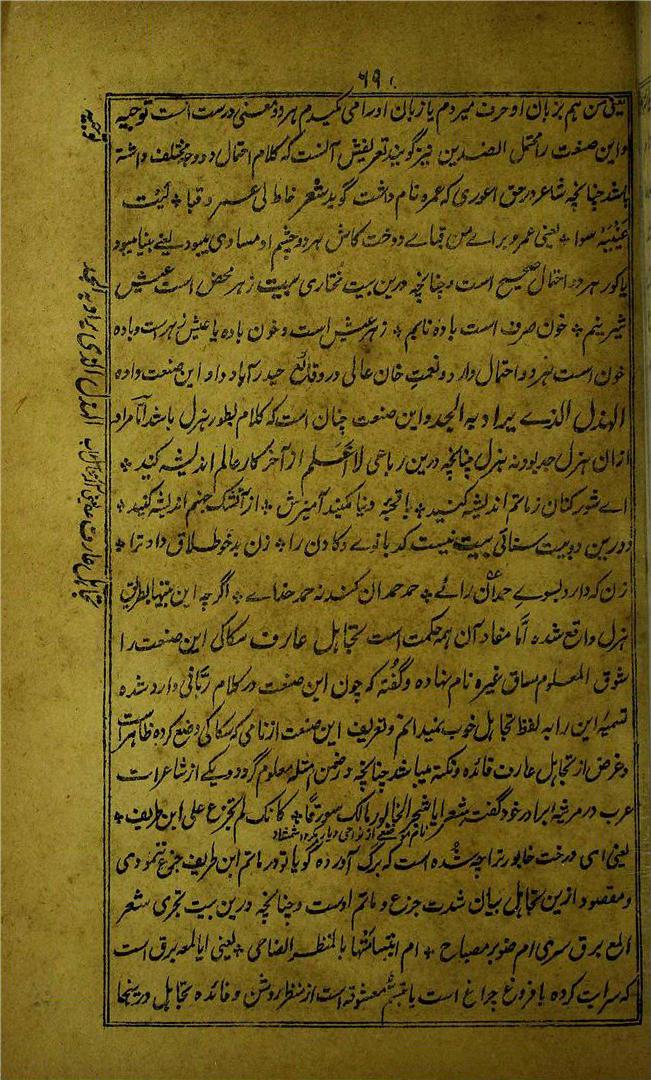 ۶۹
یعنی من هم بزبان او حرف میزدم یا زبان او را می مکیدم هر دو معنی درست است توجیه
توجیه
و این صنعت را محتمل الضدین نیز گویند تعریفش آنست که کلام احتمال دو وجه مختلف داشته
باشد چنانچه شاعر در حق اعوری که عمرو نام داشت گوید شعر خاط لی عمرو قبا * لیت
عینیه سوا * یعنی عمرو برای من قبای دوخت کاش هر دو چشم او مساوی میبود یعنی بینا میبود
یا کور هر دو احتمال صحیح است و چنانچه درین بیت مختاری بیت زهر محض است عیش
شیرینم * خون صرف است باده نابم * زهر عیش است و خون باده یا عیش زهر است و باده
خون است هر دو احتمال دارد و نعمت خان عالی در وقائع حیدرآباد داد این صنعت داده
الهزل الذی یراد به الجد و این صنعت چنان است که کلام بطور هزل باشد اما مراد
الهزل الذی یراد به الجد
ازان هزل جد بود نه هزل چنانچه درین رباعی لا اعلم از آخر کار عالم اندیشه کنید *
ای شور کنان ز ماتم اندیشه کنید * با قحبه دنیا مکنید آمیزش * از آتشک جهنم اندیشه کنید *
و درین دو بیت سنائی بیت نیست کدبانوی دکان را * زن بدخو طلاق داد ترا *
زن که دارد بسوی حمدان رائے * حمد حمدان کند نه حمد خدای * اگرچه این بیتها بطریق
هزل واقع شده امّا مفاد آن همه حکمت است تجاهل عارف سکاکی این صنعت را
تجاهل عارف
سوق المعلوم مساق غیره نام نهاده و گفته که چون این صنعت در کلام ربّانی وارد شده
تسمیه این را به لفظ تجاهل خوب نمیدانم و تعریف این صنعت از نامی که سکاکی وضع کرده ظاهر است
و غرض از تجاهل عارف فائده و نکته میباشد چنانچه در ضمن امثله معلوم گردد یکی از شاعرات
عرب در مرثیه برادر خود گفته شعر ایا شجر الخابور مالک مورقا * کانک لم تجزع علی ابن طریف *
یعنی ای درخت خابور ترا چه شده است که برگ آورده گویا تو در ماتم ابن طریف جزع ننمودی
و مقصود ازین تجاهل بیان شدت جزع و ماتم اوست و چنانچه درین بیت بحتری شعر
المع برق سری ام ضوء مصباح * ام ابتسامتها بالمنظر الضاحی * یعنی ایا لمعه برق است
که سرایت کرده یا فروغ چراغ است یا تبسم معشوقه است از منظر روشن و فائده تجاهل درینجا